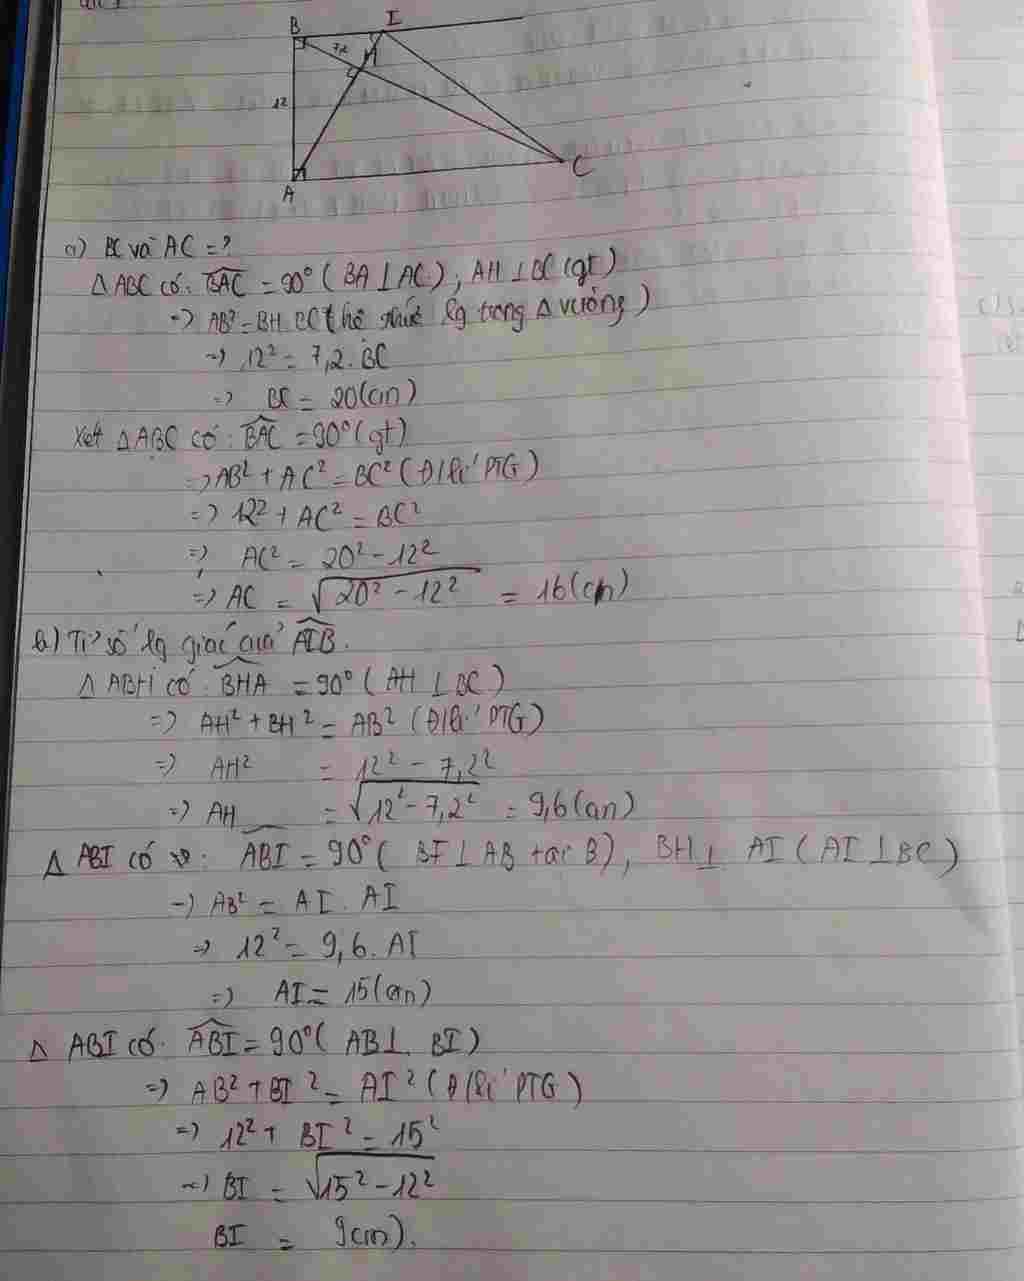 B
I
7,2
H
12
A
C
a) BC và AC = ?
Δ ABC có: BAC = 90° ( BA ⊥ AC ) ; AH ⊥ BC (gt)
=> AB² = BH. BC ( hệ thức lg trong Δ vuông )
=> 12² = 7,2 . BC
=> BC = 20 (cm)
Xét Δ ABC có : BAC = 90° (gt)
=> AB² + AC² = BC² ( Đ/lí PTG )
=> 12² + AC² = BC²
=> AC² = 20² - 12²
=> AC = √20² - 12² = 16 (cm)
b) Tỉ số lg giác của AIB.
Δ ABH có : BHA = 90° ( AH ⊥ BC )
=> AH² + BH² = AB² ( Đ/lí PTG )
=> AH² = 12² - 7,2²
=> AH = √12² - 7,2² = 9,6 (cm)
Δ ABI có : ABI = 90° ( BI ⊥ AB tại B ) , BH ⊥ AI ( AI ⊥ BC )
=> AB² = AI . AI
=> 12² = 9,6. AI
=> AI = 15 (cm)
Δ ABI có. ABI = 90° ( AB ⊥ BI )
=> AB² + BI² = AI² ( Đ/lí PTG )
=> 12² + BI² = 15²
=> BI = √15² - 12²
BI = 9cm).